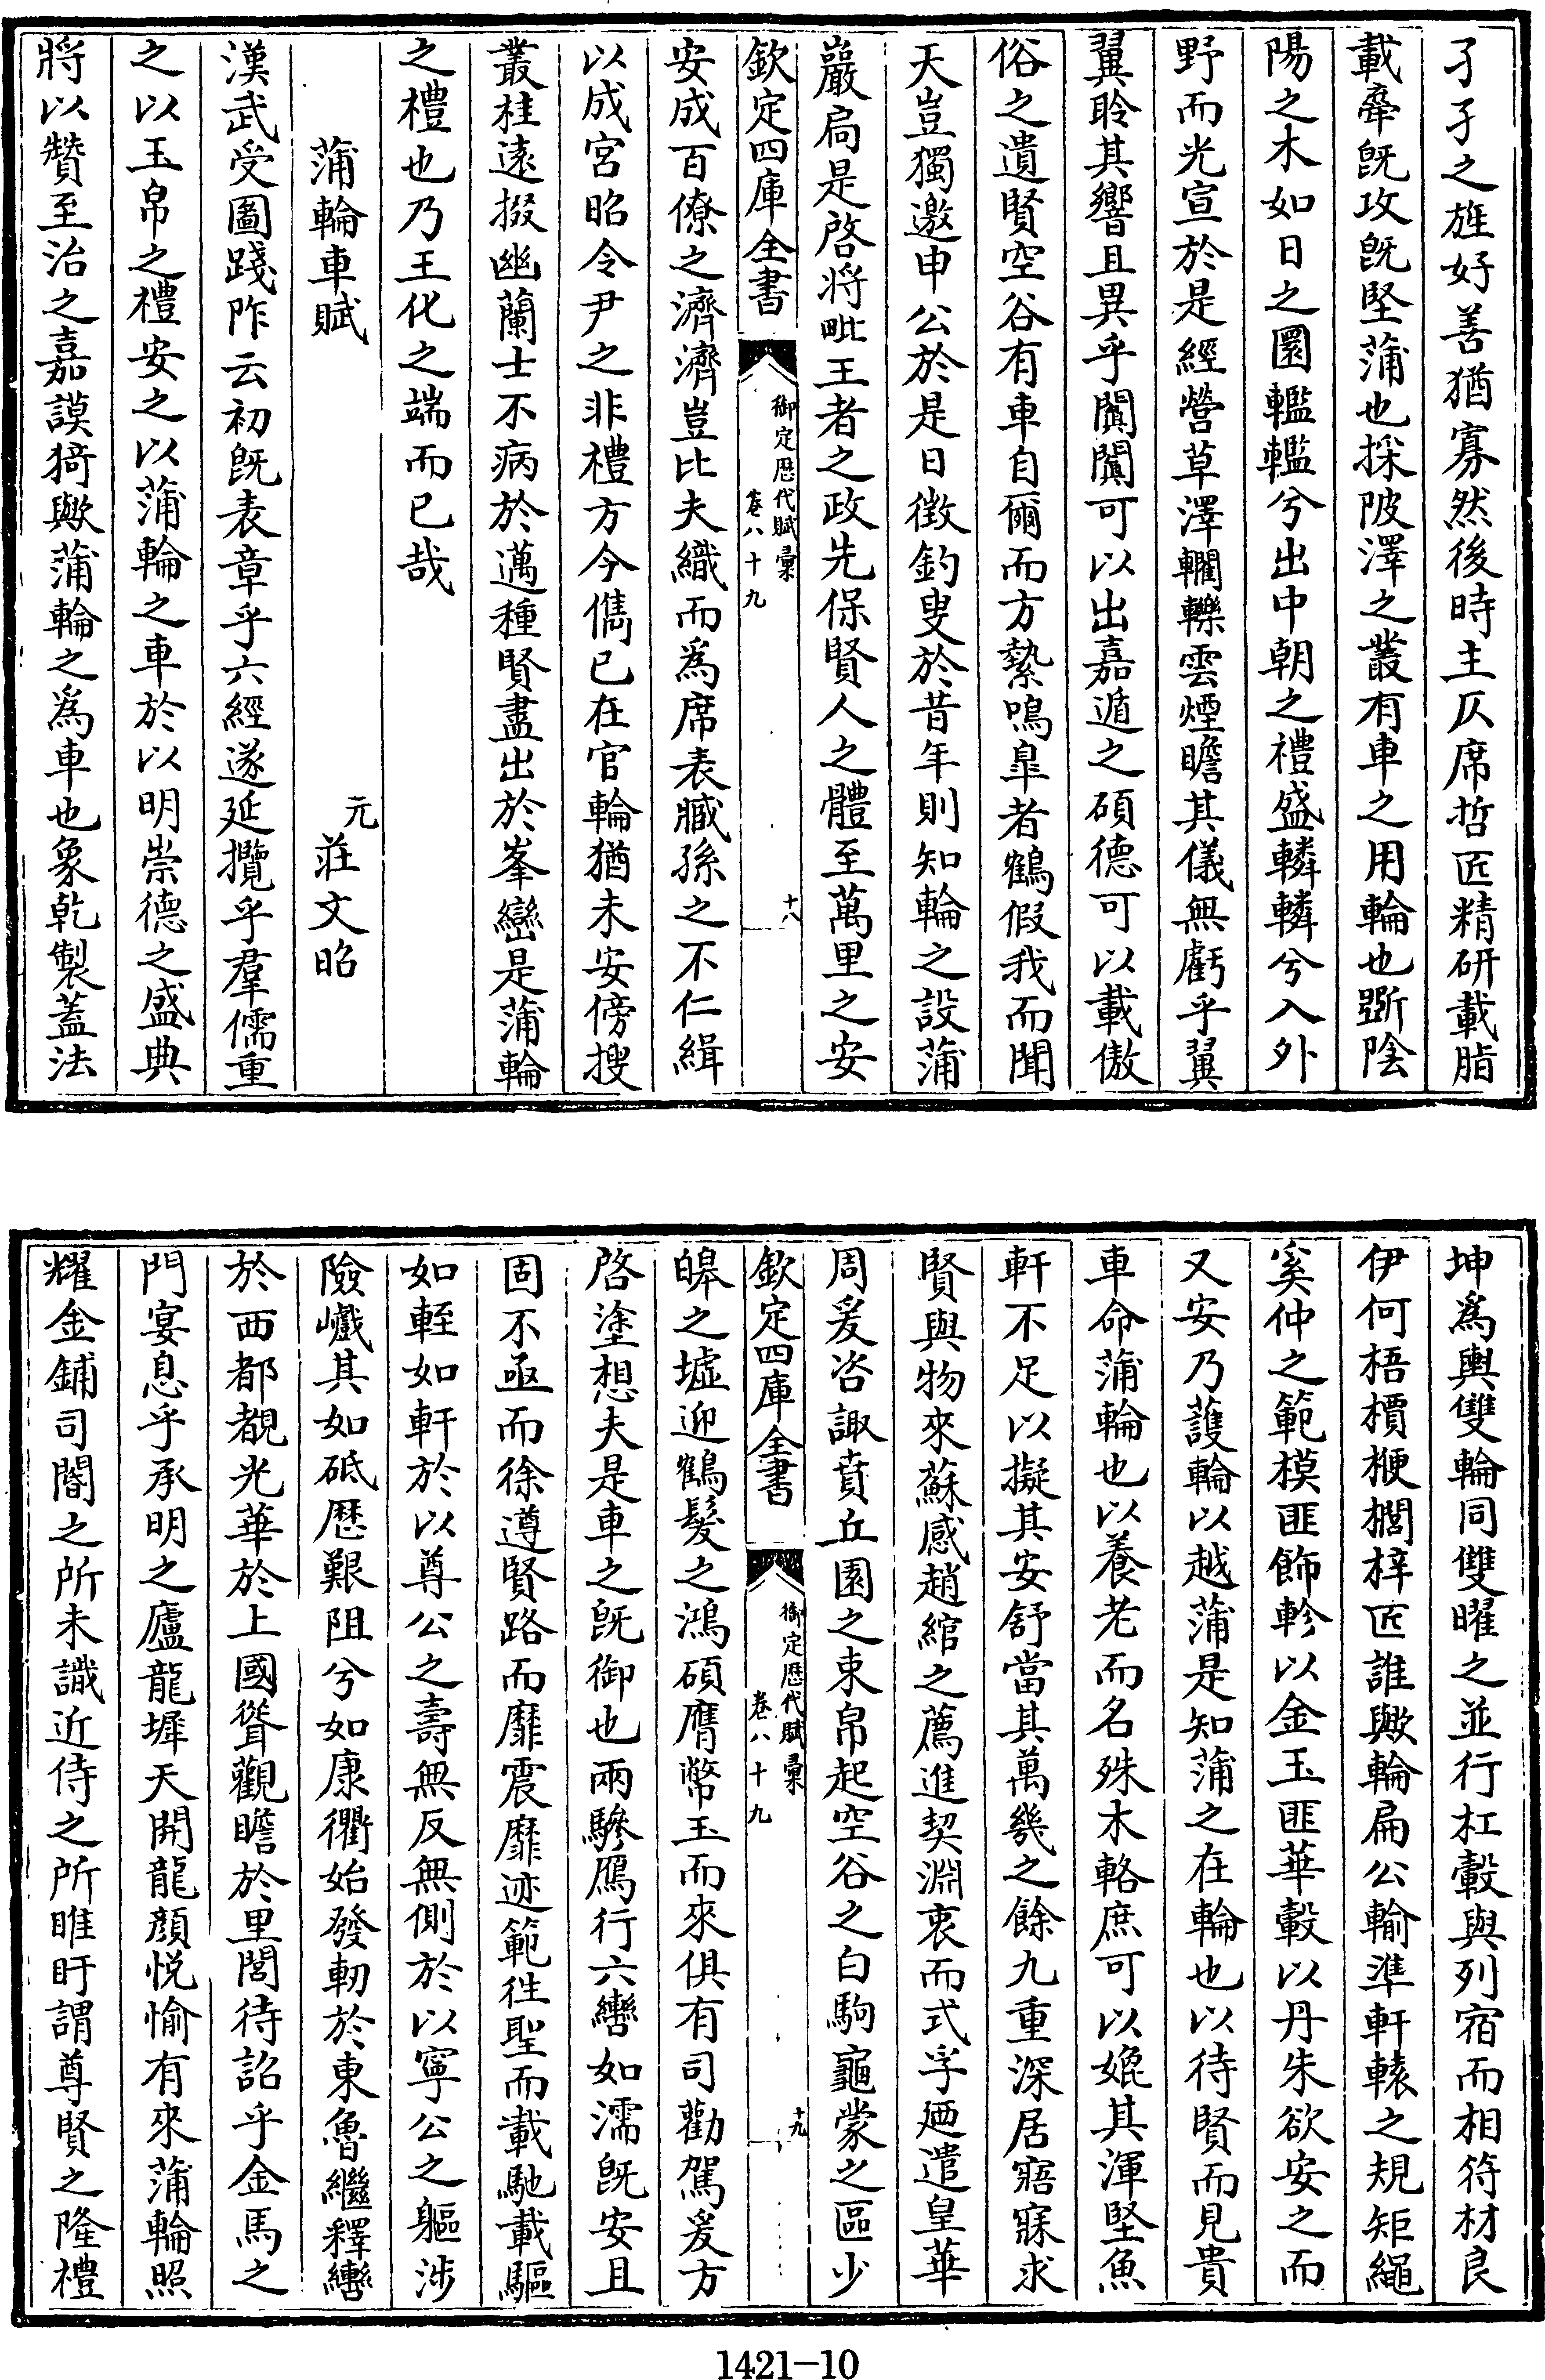 孑孑之旌好善猶寡然後時主仄席哲匠精研載脂
載舝旣攻旣堅蒲也採陂澤之叢有車之用輪也斲陰
陽之木如日之圜轞轞兮出中朝之禮盛轔轔兮入外
野而光宣於是經營草澤轥轢雲煙瞻其儀無虧乎翼
翼聆其響且異乎闐闐可以出嘉遁之碩德可以載傲
俗之遺賢空谷有車自爾而方縶鳴臯者鶴假我而聞
天豈獨邀申公於是日徵釣叟於昔年則知輪之設蒲
巖扃是啓將毗王者之政先保賢人之體至萬里之安
欽定四庫全書
御定歷代賦彙
卷八十九
十八
安成百僚之濟濟豈比夫織而為席表臧孫之不仁緝
以成宮昭令尹之非禮方今儁已在官輪猶未安傍搜
叢桂遠掇幽蘭士不病於邁種賢盡出於峯巒是蒲輪
之禮也乃王化之端而已哉
蒲輪車賦
元莊文昭
漢武受圖踐阼云初旣表章乎六經遂延攬乎羣儒重
之以玉帛之禮安之以蒲輪之車於以明崇德之盛典
將以贊至治之嘉謨猗歟蒲輪之為車也象乾製蓋法
坤為輿雙輪同雙曜之並行杠轂與列宿而相符材良
伊何梧檟楩櫚梓匠誰歟輪扁公輸準軒轅之規矩繩
奚仲之範模匪飾軫以金玉匪華轂以丹朱欲安之而
又安乃護輪以越蒲是知蒲之在輪也以待賢而見貴
車命蒲輪也以養老而名殊木輅庶可以媲其渾堅魚
軒不足以擬其安舒當其萬幾之餘九重深居寤寐求
賢與物來蘇感趙綰之薦進契淵衷而式孚廼遣皇華
周爰咨諏賁丘園之束帛起空谷之白駒龜蒙之區少
欽定四庫全書
御定歷代賦彙
卷八十九
十九
皞之墟迎鶴髮之鴻碩膺幣玉而來俱有司勸駕爰方
啓塗想夫是車之旣御也兩驂鴈行六轡如濡旣安且
固不亟而徐遵賢路而靡震靡迹範徃聖而載馳載驅
如輊如軒於以尊公之壽無反無側於以寧公之軀涉
險巇其如砥歷艱阻兮如康衢始發軔於東魯繼釋轡
於西都覩光華於上國聳觀瞻於里閭待詔乎金馬之
門宴息乎承明之廬龍墀天開龍顏悅愉有來蒲輪照
耀金鋪司閽之所未識近侍之所睢盱謂尊賢之隆禮
1421-10